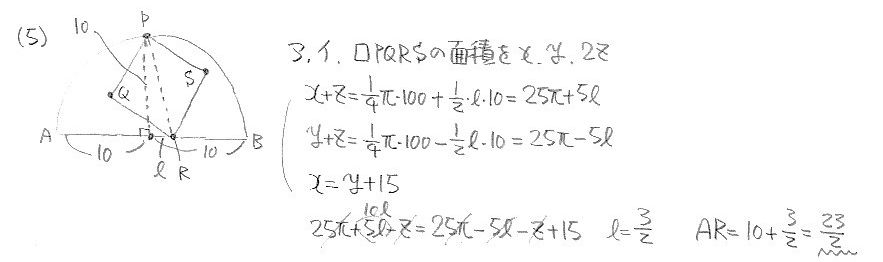 (5)
10
P
S
Q
A
10
l
R
10
B
ア, イ, □PQRSの面積をx, y, 2z
x+z=\frac{1}{4}π・100+\frac{1}{2}・l・10=25π+5l
y+z=\frac{1}{4}π・100-\frac{1}{2}l・10=25π-5l
x=y+15
10l
25π+5l-z=25π-5l-z+15 l=\frac{3}{2} AR=10+\frac{3}{2}=\frac{23}{2}